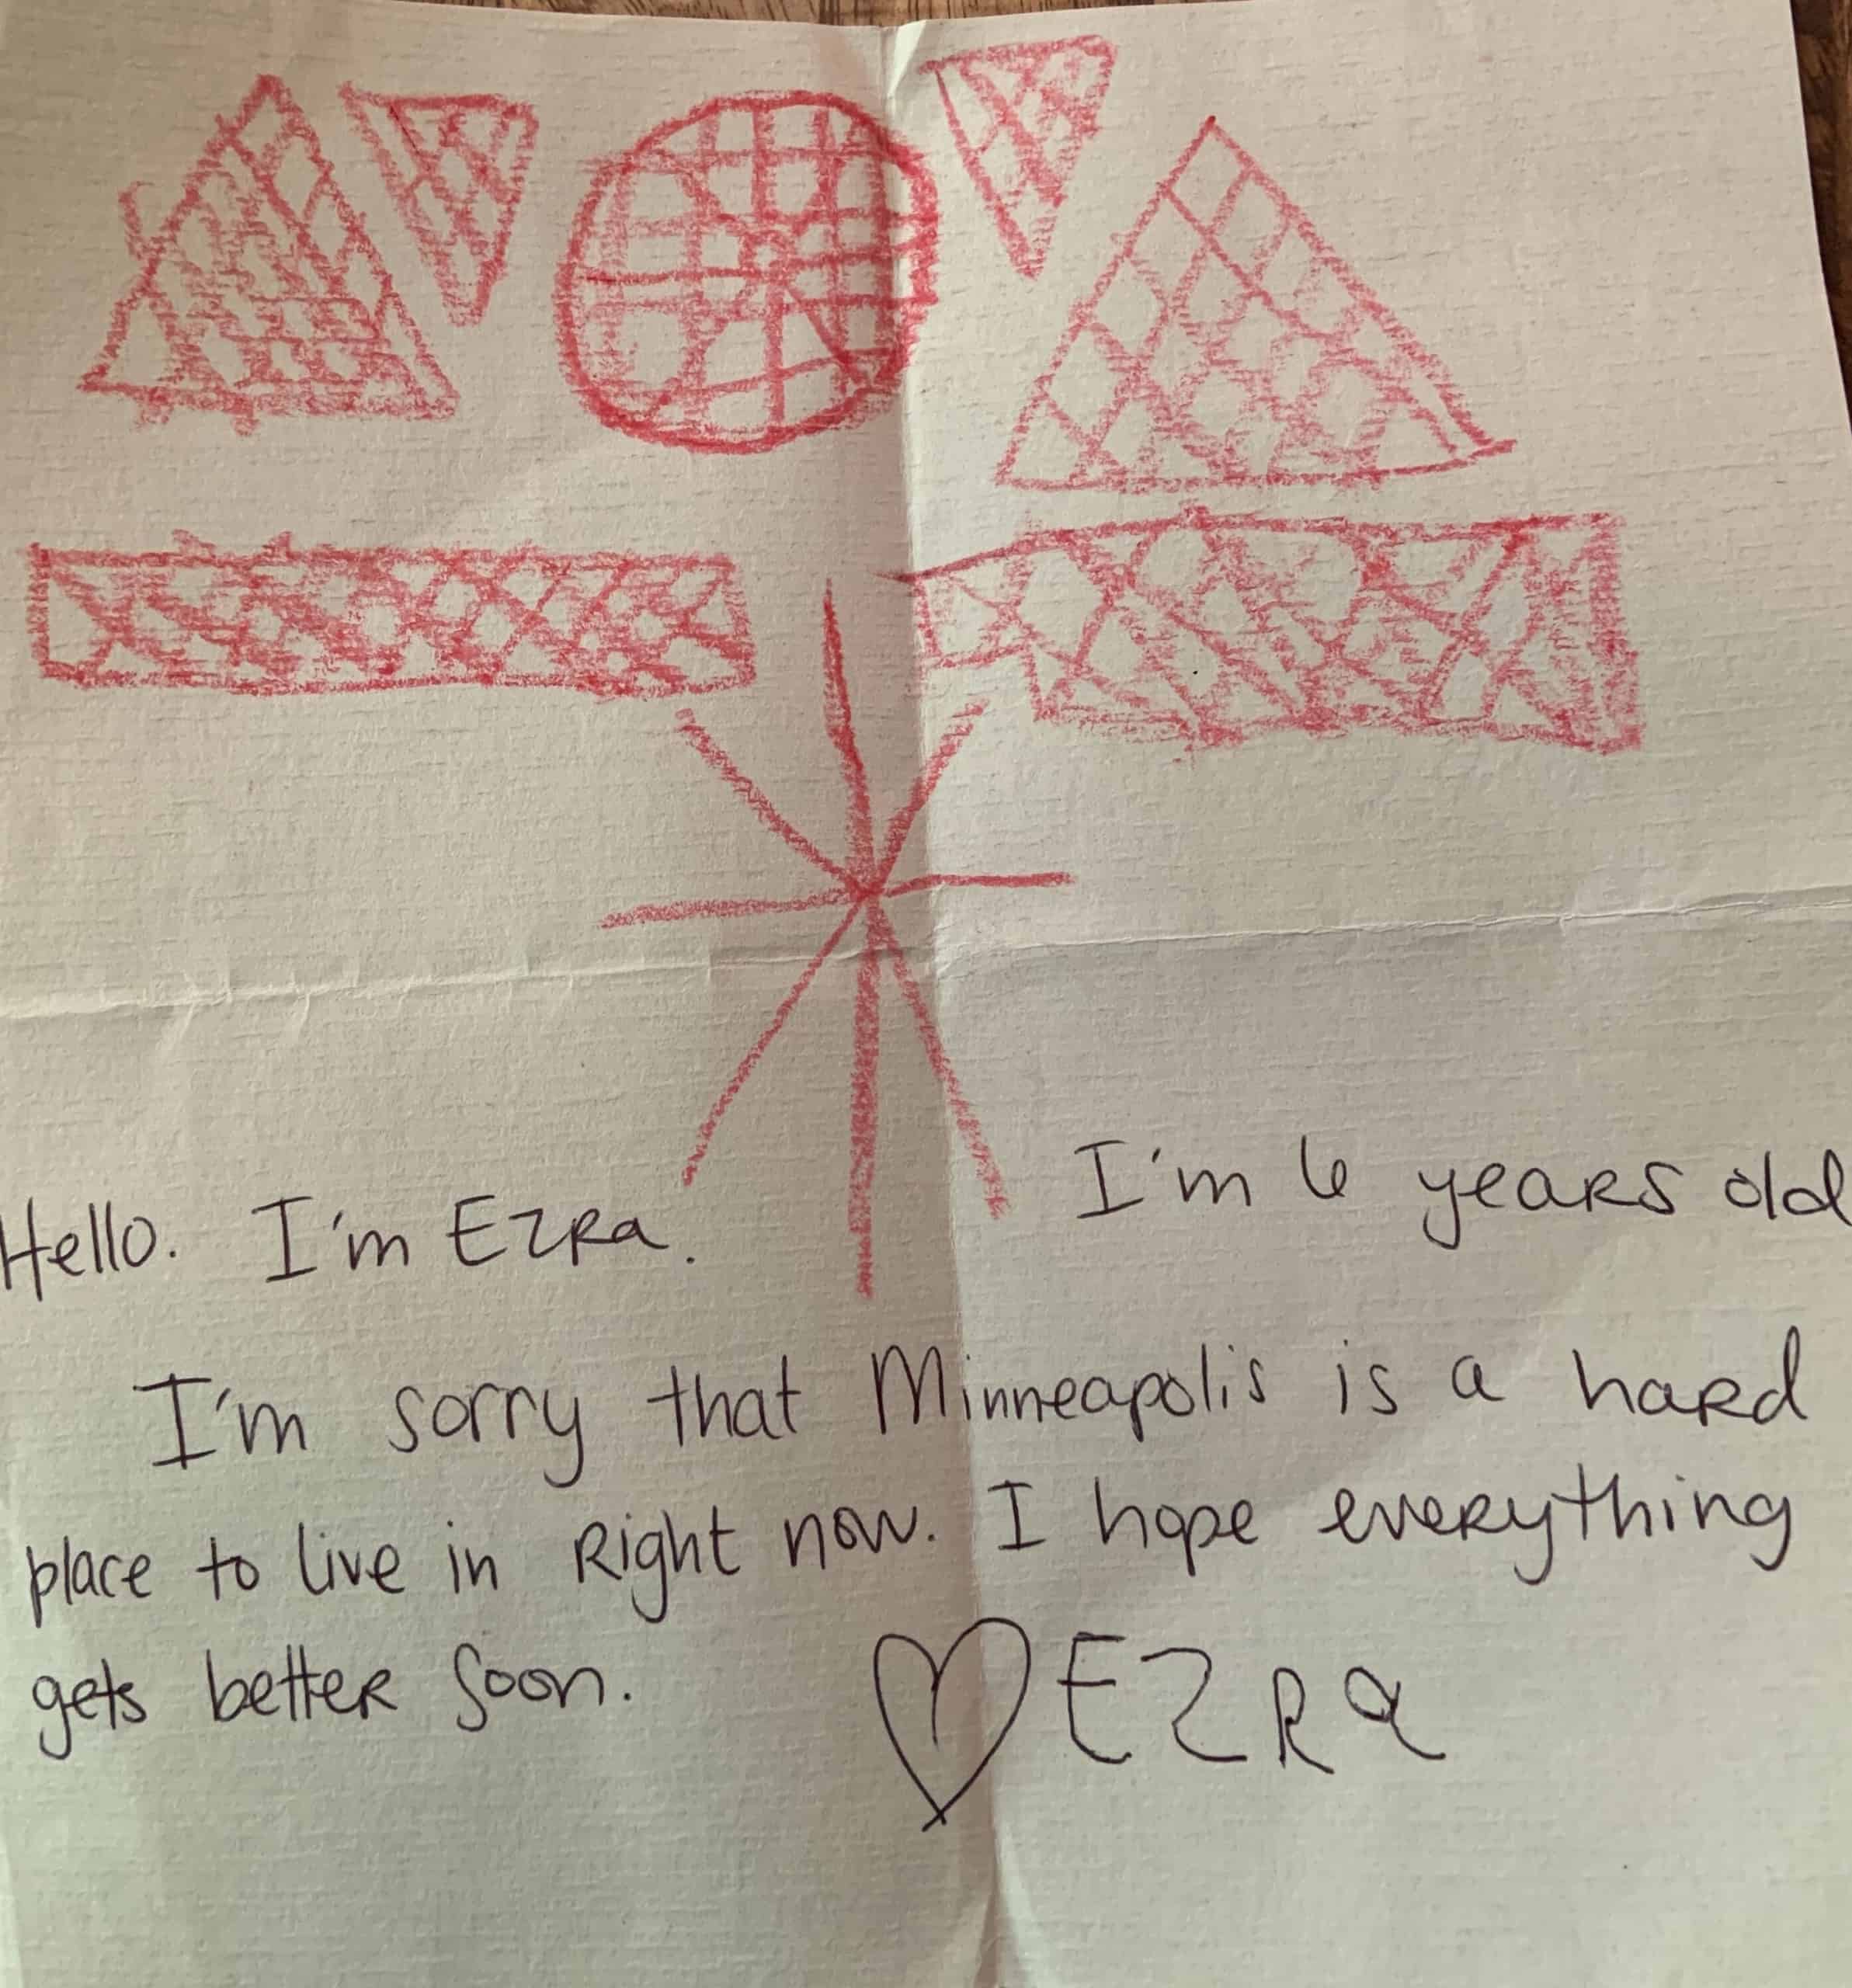 Hello. I'm Ezra. I'm 6 years old
I'm sorry that Minneapolis is a hard
place to live in Right now. I hope everything
gets better soon. ♡ EZRa